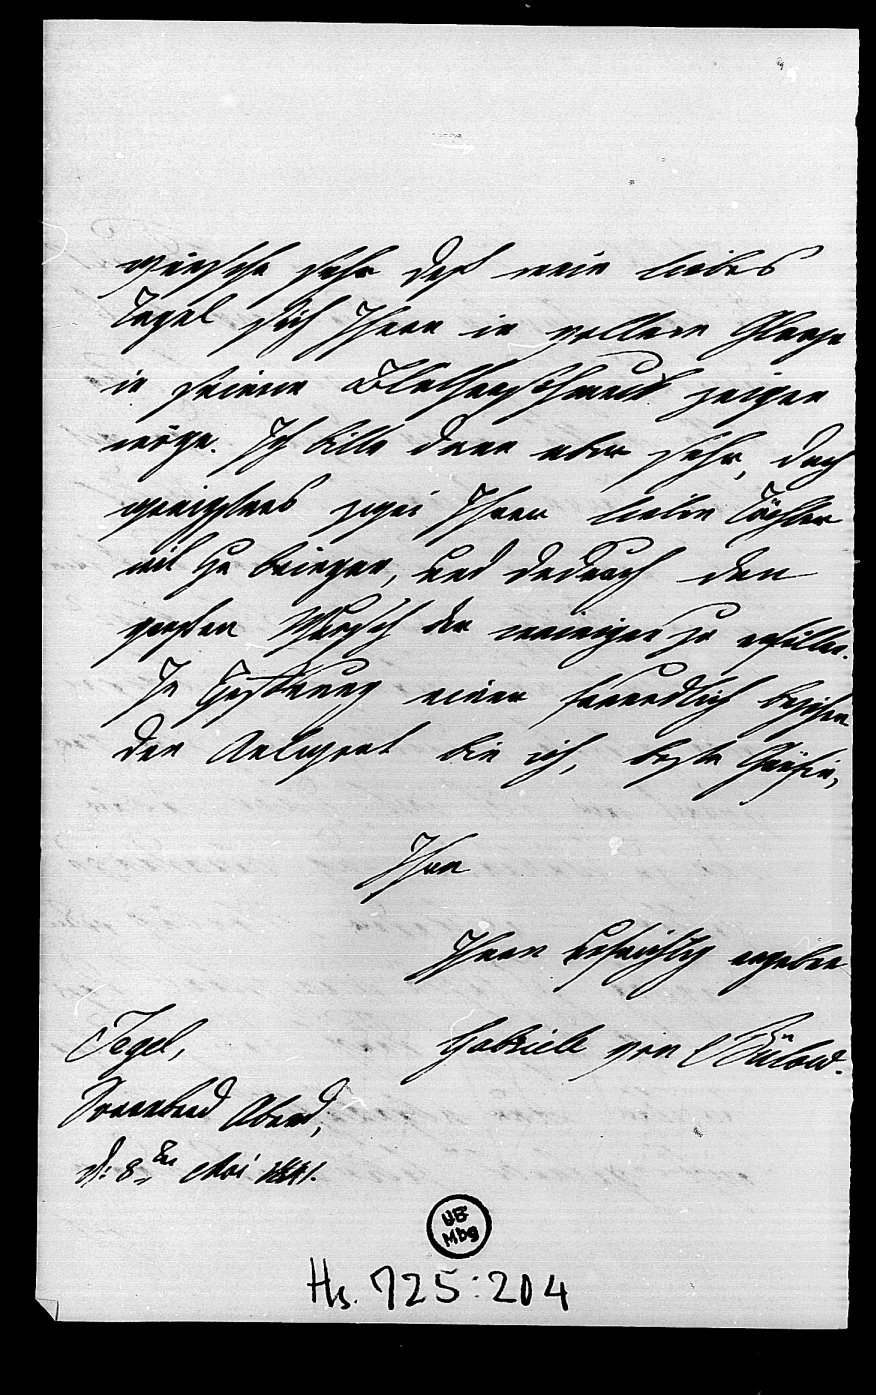 wünsche sehr daß mein liebes
Tegel sich Ihnen in vollem Glanze
in seinem Blüthenschmuck zeigen
möge. Ich bitte dann aber sehr, doch
wenigstens zwei Ihrer lieben Töchter
mit zu bringen, und dadurch den
großen Wunsch der meinigen zu erfüllen.
In Hoffnung einer freundlich bejahen-
den Antwort bin ich, beste Gräfin,
Ihre
Ihnen aufrichtig ergebene
Gabriele von Bülow.
Tegel,
Sonnabend Abend,
d: 8ten Mai 1841.
UB
Mbg
Hs. 725:204